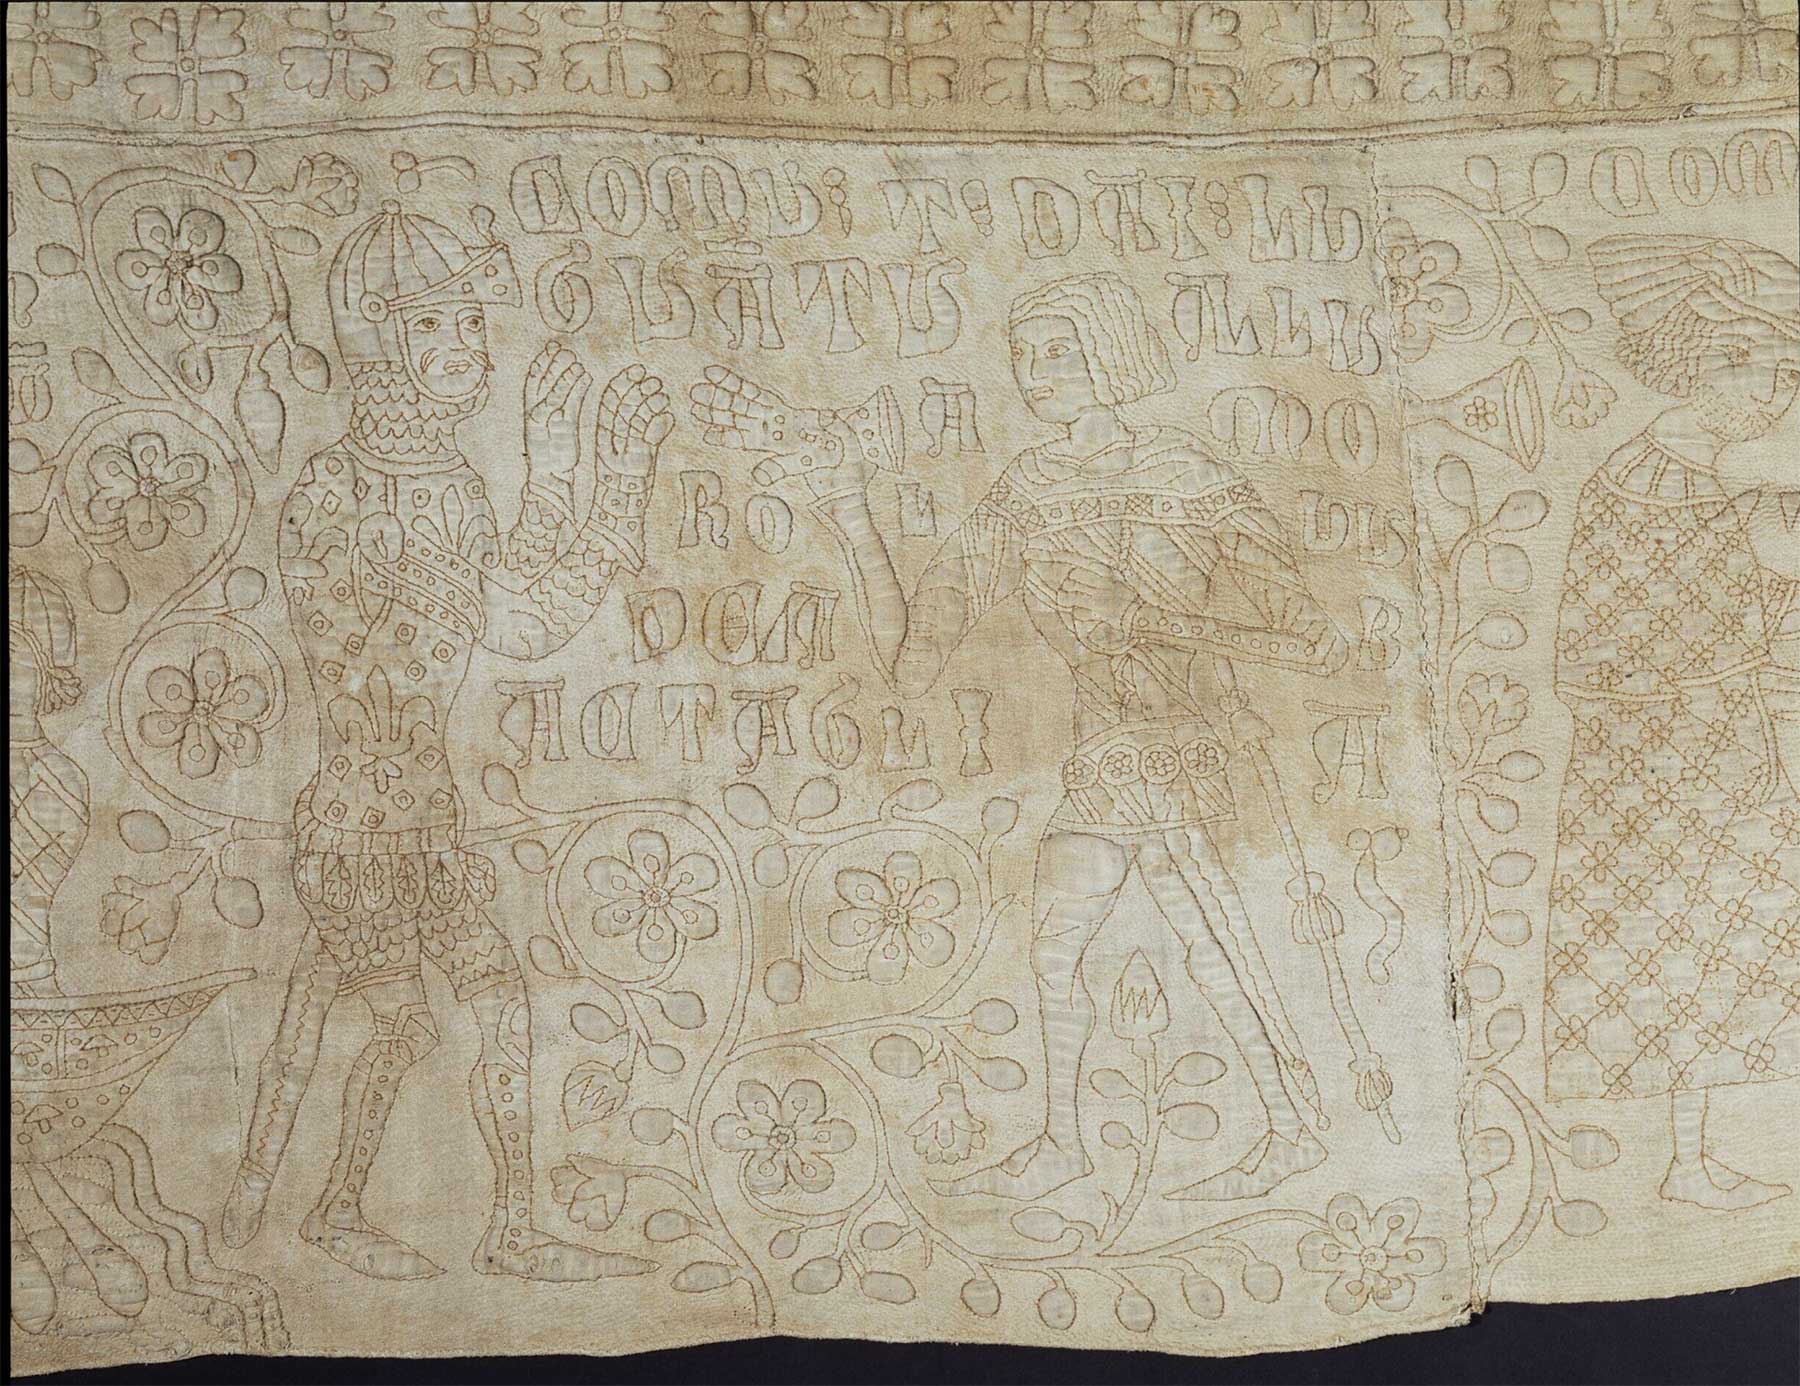 COMU : T : DAI : LU
GUĀTU ALLU
A MO
RO L LU
DELA B
ACTAGLI A
COM